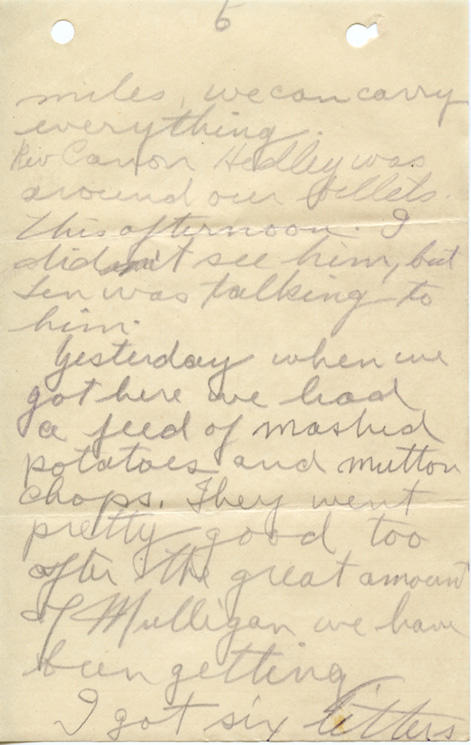 5
miles, we can carry
everything.
Rev Canon Hedley was
around our billets
this afternoon. I
didn't see him, but
Len was talking to
him.
Yesterday when we
got here we had
a feed of mashed
potatoes and mutton
chops. They went
pretty good too
after the great amount
of Mulligan we have
been getting
I got six letters